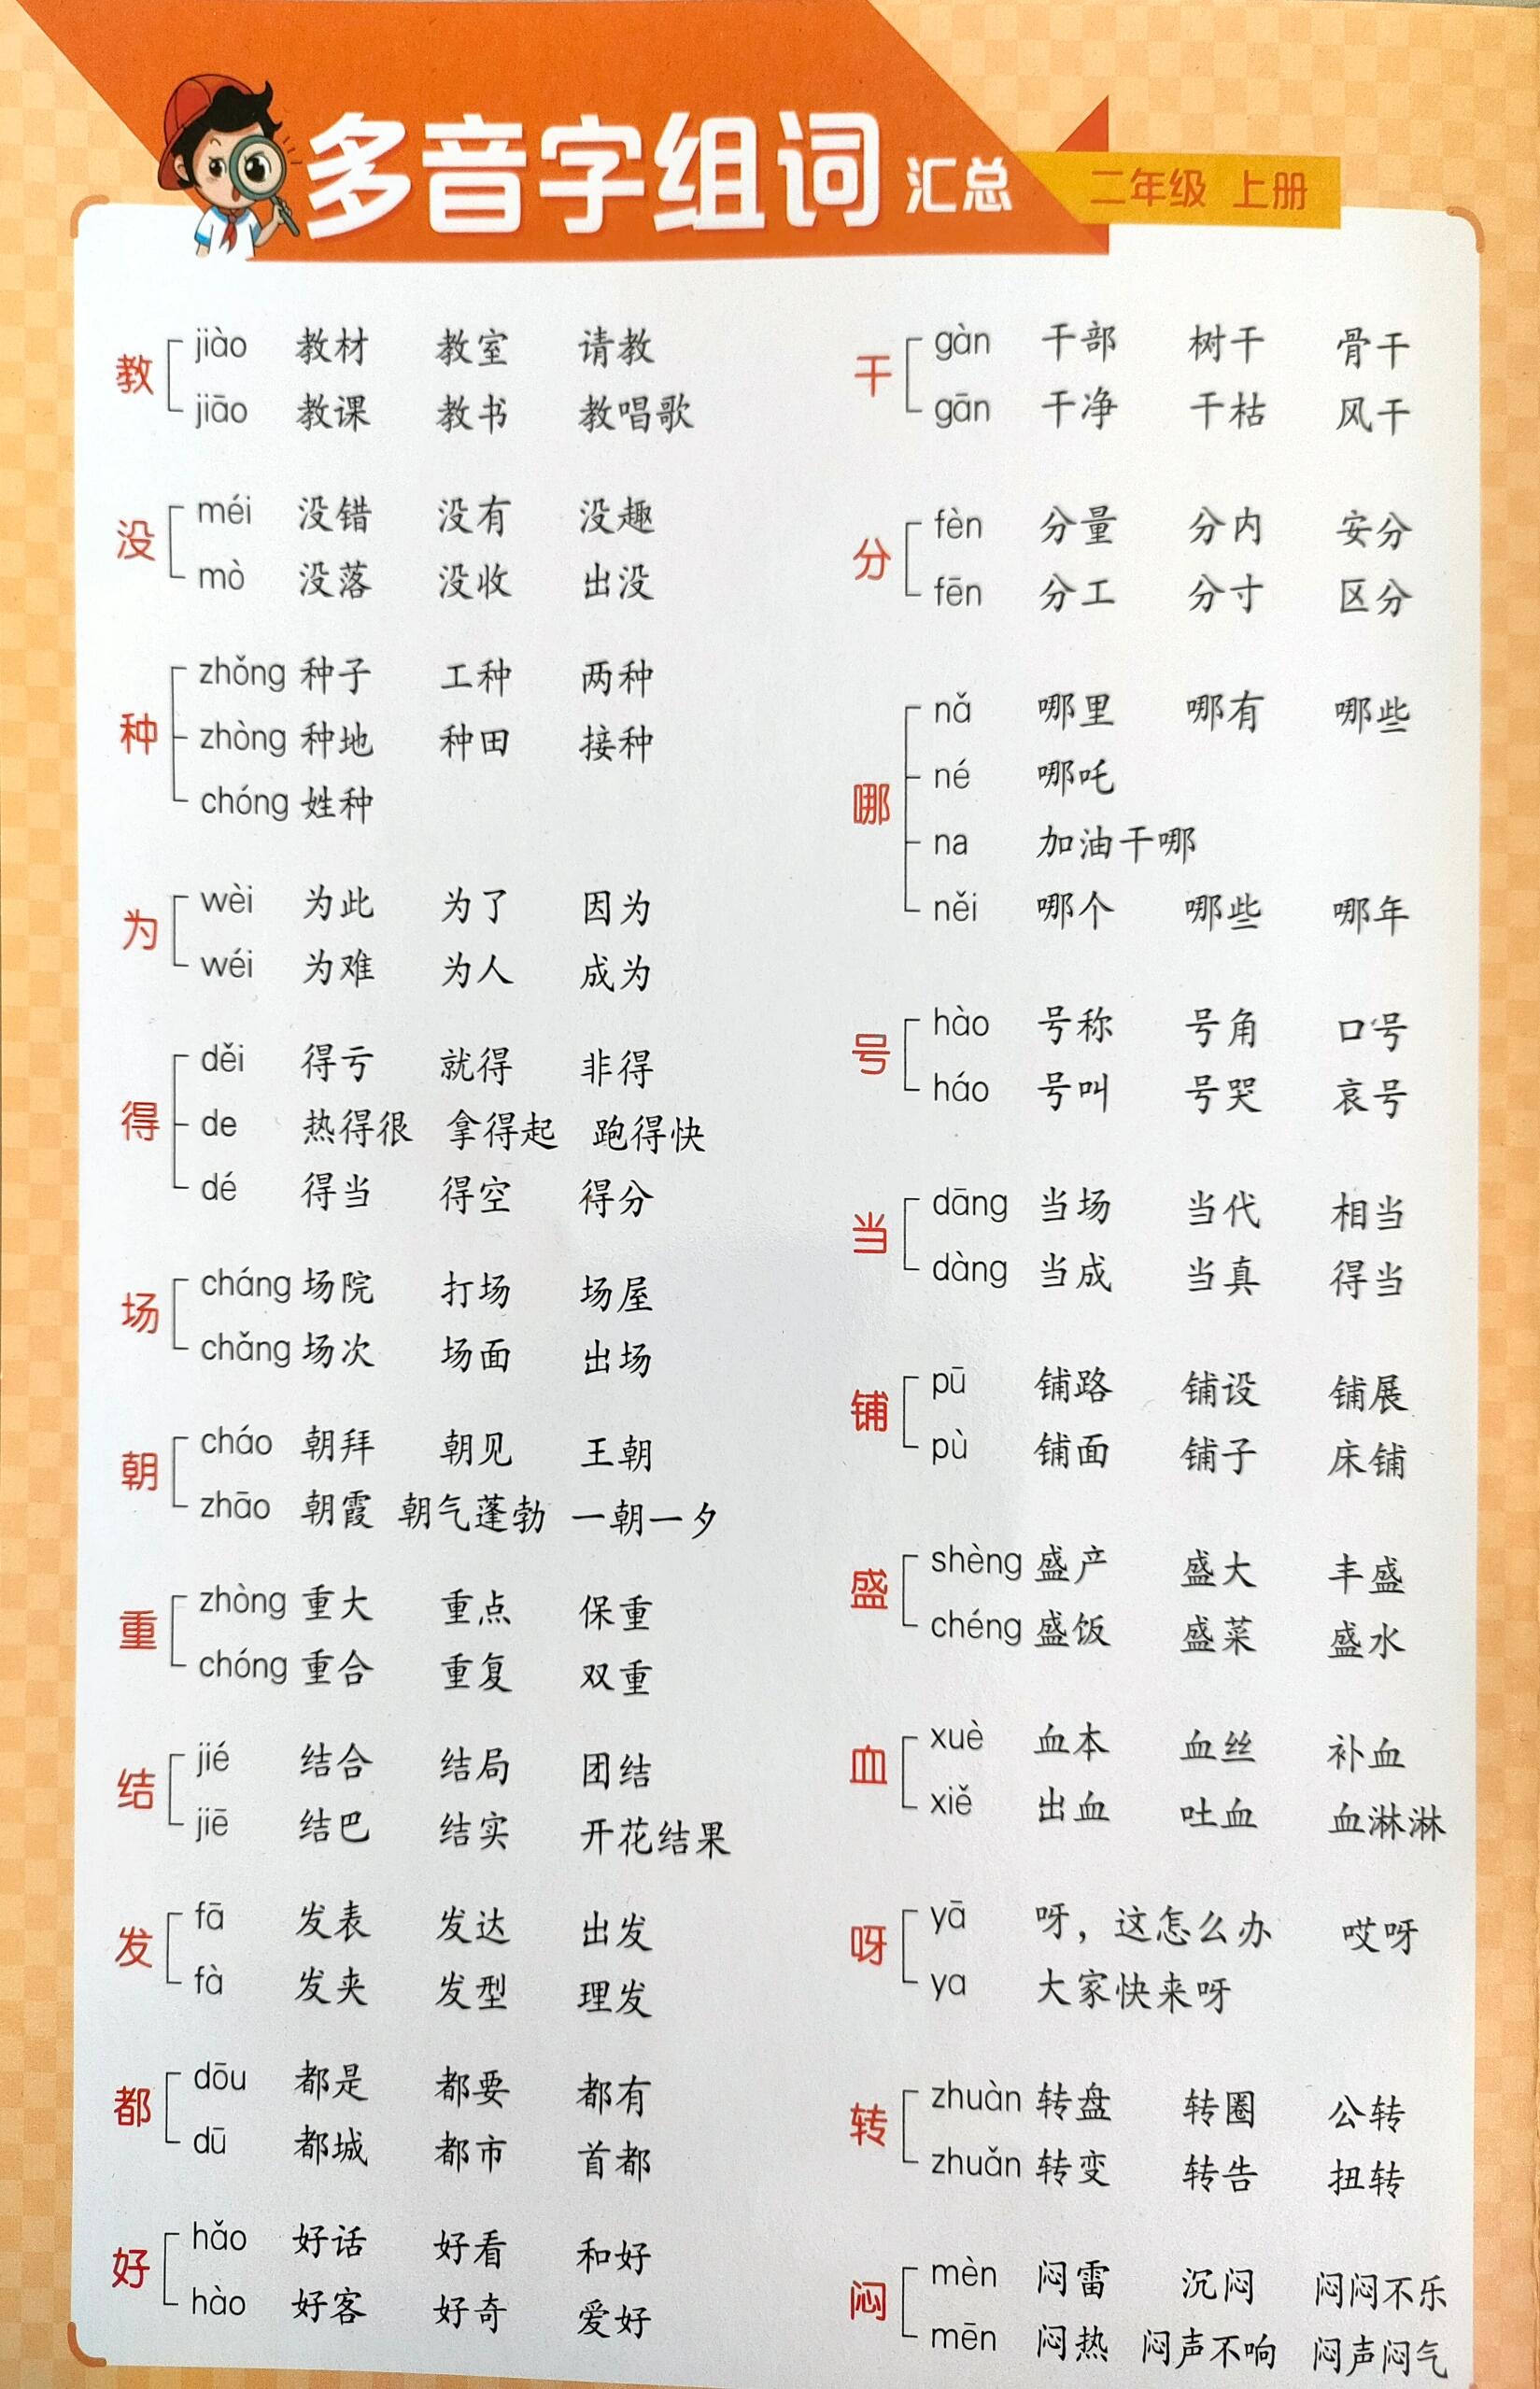 多音字组词 汇总 二年级 上册
教
jiào 教材 教室 请教
jiāo 教课 教书 教唱歌
没
méi 没错 没有 没趣
mò 没落 没收 出没
种
zhǒng 种子 工种 两种
zhòng 种地 种田 接种
chóng 姓种
为
wèi 为此 为了 因为
wéi 为难 为人 成为
得
děi 得亏 就得 非得
de 热得很 拿得起 跑得快
dé 得当 得空 得分
场
cháng 场院 打场 场屋
chǎng 场次 场面 出场
朝
cháo 朝拜 朝见 王朝
zhāo 朝霞 朝气蓬勃 一朝一夕
重
zhòng 重大 重点 保重
chóng 重合 重复 双重
结
jié 结合 结局 团结
jiē 结巴 结实 开花结果
发
fā 发表 发达 出发
fà 发夹 发型 理发
都
dōu 都是 都要 都有
dū 都城 都市 首都
好
hǎo 好话 好看 和好
hào 好客 好奇 爱好
干
gàn 干部 树干 骨干
gān 干净 干枯 风干
分
fèn 分量 分内 安分
fēn 分工 分寸 区分
哪
nǎ 哪里 哪有 哪些
né 哪吒
na 加油干哪
něi 哪个 哪些 哪年
号
hào 号称 号角 口号
háo 号叫 号哭 哀号
当
dāng 当场 当代 相当
dàng 当成 当真 得当
铺
pū 铺路 铺设 铺展
pù 铺面 铺子 床铺
盛
shèng 盛产 盛大 丰盛
chéng 盛饭 盛菜 盛水
血
xuè 血本 血丝 补血
xiě 出血 吐血 血淋淋
呀
yā 呀，这怎么办 哎呀
ya 大家快来呀
转
zhuàn 转盘 转圈 公转
zhuǎn 转变 转告 扭转
闷
mèn 闷雷 沉闷 闷闷不乐
mēn 闷热 闷声不响 闷声闷气